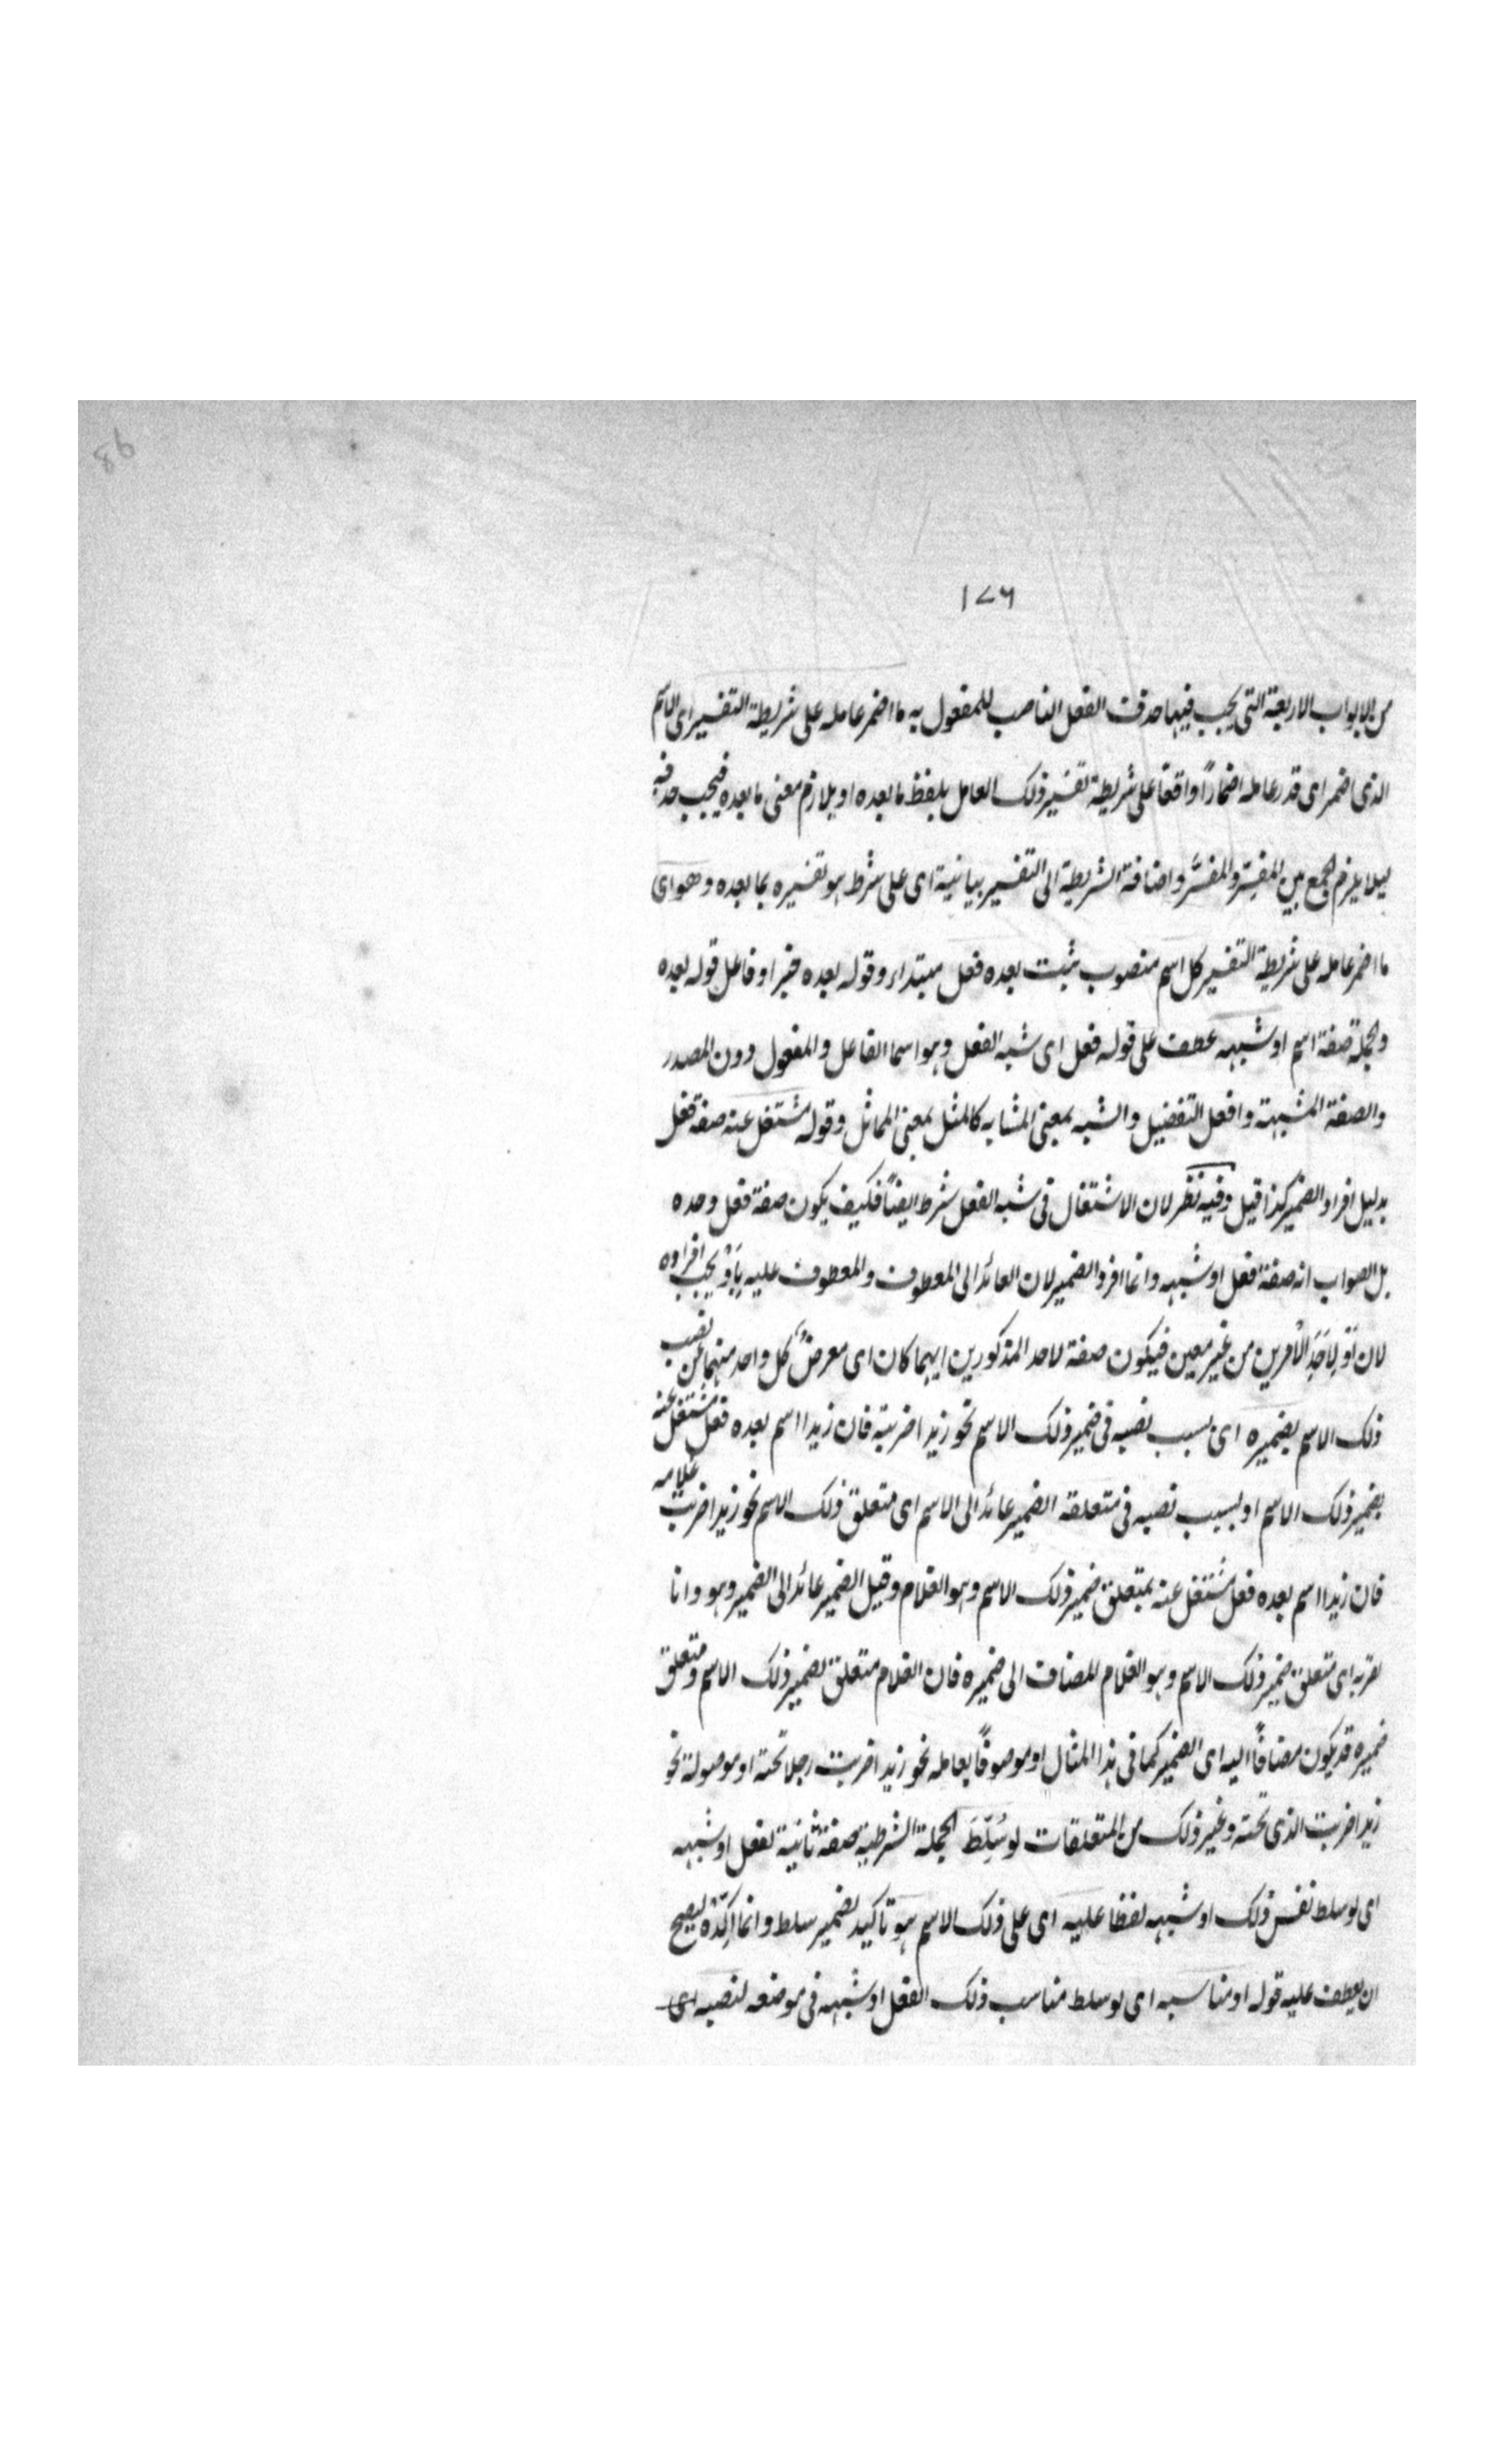 98
۱۷۶
من الابواب الاربعة التى يجب فيها حذف الفعل الناصب للمفعول به ما اضمر عامله على شريطة التفسير اى الاسم
الذى اضمر اى قدر عامله اضمارًا واقعًا على شريطة تفسير ذلك العامل بلفظ ما بعده او بلازم معنى ما بعده فيجب حذفه
ليلا يلزم الجمع بين المفسِّر والمفسَّر واضافة الشريطة الى التفسير بيانية اى على شرط هو تفسيره بما بعده وهو اى
ما اضمر عامله على شريطة التفسير كل اسم منصوب ثبت بعده فعل مبتداء وقوله بعده خبر او فاعل قوله بعده
والجملة صفة اسم او شبهه عطف على قوله فعل اى شبه الفعل وهو اسما الفاعل والمفعول دون المصدر
والصفة المشبهة وافعل التفضيل والشبه بمعنى المشابه كالمثل بمعنى المماثل وقوله مشتغل عنه صفة فعل
بدليل افراد الضمير كذا قيل وفيه نظر لان الاشتغال فى شبه الفعل شرط ايضًا فكيف يكون صفة فعل وحده
بل الصواب انه صفة فعل او شبهه وانما افرد الضمير لان العائد الى المعطوف والمعطوف عليه بِاَوْ يجب افراده
لان اَوْ لِاَحَدِ الْاَمرين من غير معين فيكون صفة لاحد المذكورين ايهما كان اى معرضٌ كل واحد منهما عن نصب
ذلك الاسم بضميره اى بسبب نصبه فى ضمير ذلك الاسم نحو زيدا ضربته فان زيدا اسم بعده فعل مشتغل عنه
بضمير ذلك الاسم او بسبب نصبه فى متعلقه الضمير عائد الى الاسم اى متعلق ذلك الاسم نحو زيدا ضربت غلامه
فان زيدا اسم بعده فعل مشتغل عنه بمتعلق ضمير ذلك الاسم وهو الغلام وقيل الضمير عائد الى الضمير وهو وانا
لقربه اى متعلق ضمير ذلك الاسم وهو الغلام المضاف الى ضميره فان الغلام متعلق لضمير ذلك الاسم ومتعلق
ضميره قد يكون مضافًا اليه اى الضمير كما فى هذا المثال او موصوفًا بعامله نحو زيدا ضربت رجلا تحته او موصولة نحو
زيدا ضربت الذى تحته وغير ذلك من المتعلقات لو سُلِّطَ الجملة الشرطية صفة ثانية لفعل او شبهه
اى لو سلط نفس ذلك او شبهه لفظا عليه اى على ذلك الاسم هو تاكيد لضمير سلط وانما اكّده ليصح
ان يعطف عليه قوله او مناسبه اى لو سلط مناسب ذلك الفعل او شبهه فى موضعه لنصبه اى